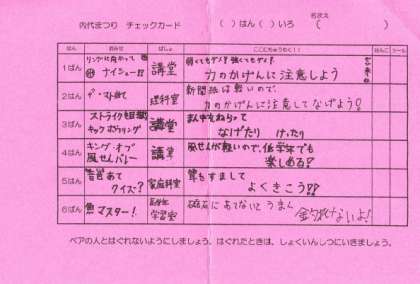 内代まつり チェックカード ( )はん( )いろ ( )
はん おみせ ばしょ ここにちゅうもく!! はんこ シール
1ぱん ナイシュー!! 講堂 弱くてもダメ!強くてもダメ!
力のかげんに注意しよう
2はん マト当て 理科室 新聞紙は軽いので、
力のかげんに注意してなげよう!
3ぱん ストライク目指せ 講堂 まん中をねらって
キックボウリング なげたり けったり
4はん キング・オブ 講堂 風せんが軽いので、低学年でも
風せんバレー 楽しめる!
5はん 音あて 家庭科室 耳をすまして
クイズ? よくきこう!!
6ぱん 魚マスター! 学習室 磁石にあてないと
ペアの人とはぐれないようにしましょう。はぐれたときは、しょくいんしつにいきましょう。